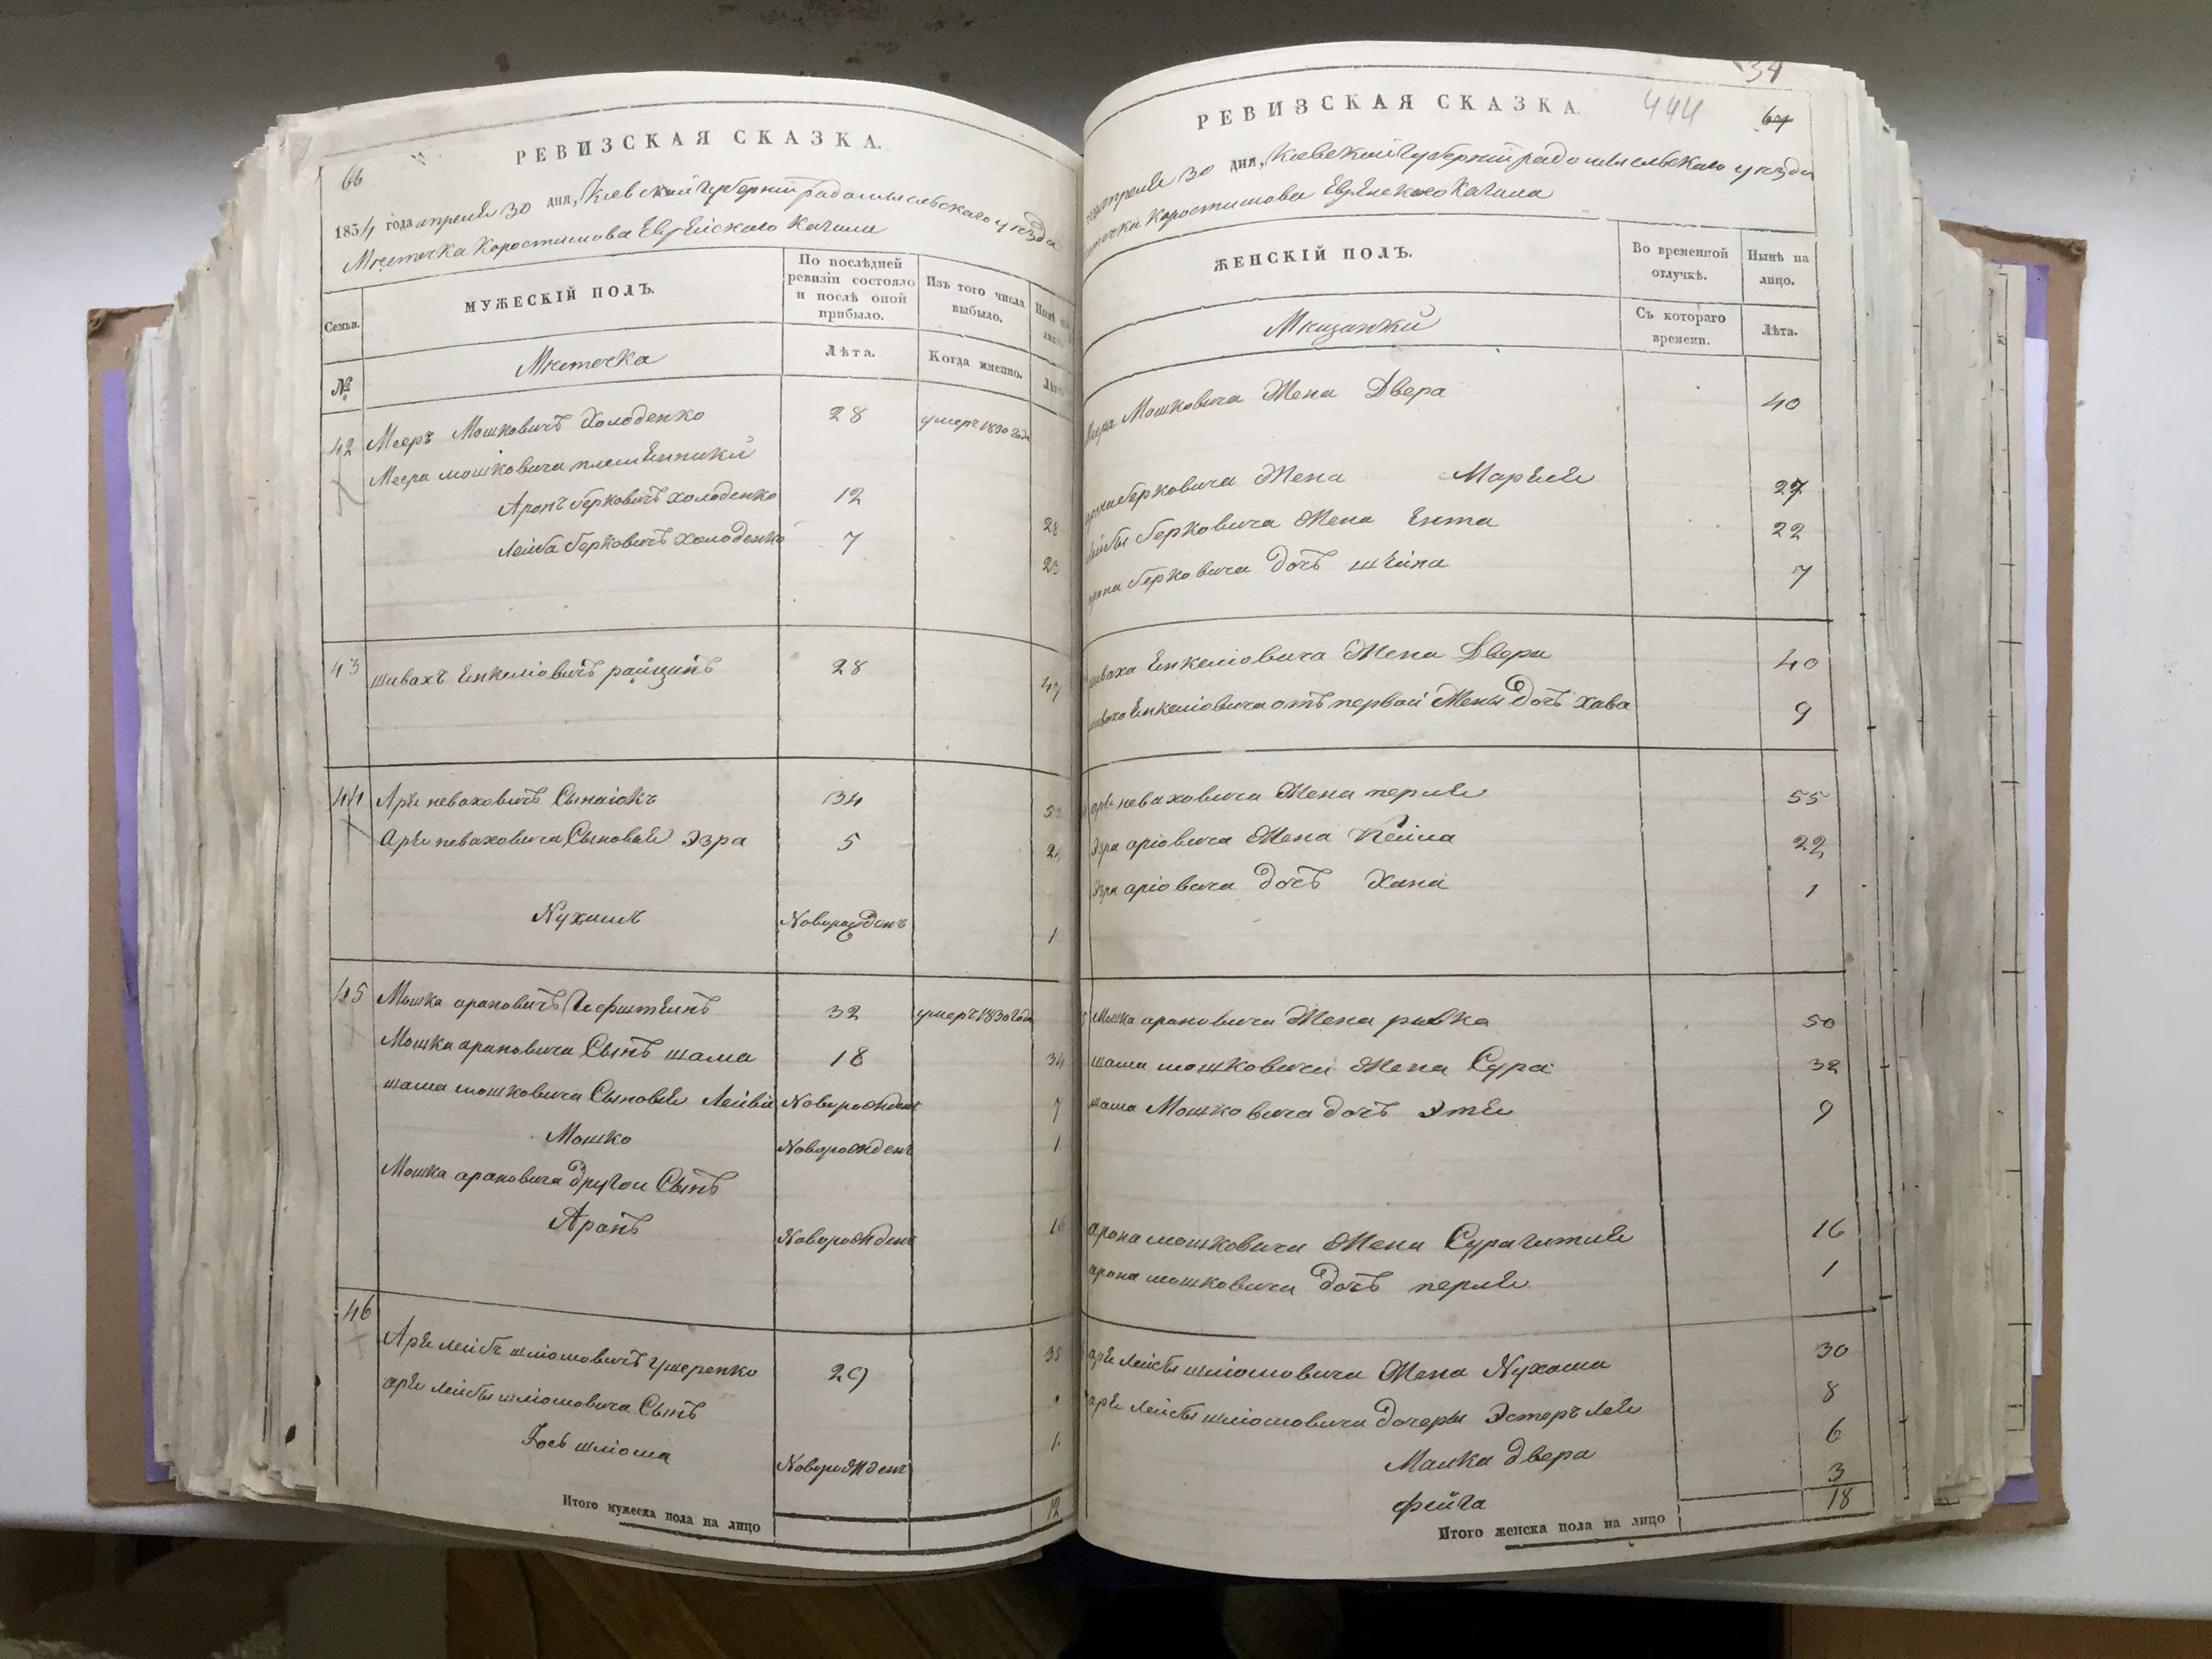 66
РЕВИЗСКАЯ СКАЗКА.
1834 года апреля 30 дня, Киевской губернии радомысльскаго уезда
Местечка Коростишова Еврейскаго Кагала
Семьи.
МУЖЕСКІЙ ПОЛЪ.
По послѣдней ревизіи состояло и послѣ оной прибыло.
Изъ того числа выбыло.
№
Местечка
Лѣта.
Когда именно.
42 Мееръ Мошковичъ Холоденко 28 умеръ 1830 года
Меера мошковича племенники
Аронъ берковичъ холоденко 12
Лейба берковичъ холоденко 7 23
43 шивахъ Енкеліовичъ райцинъ 28
44 Аріе неваховичъ 34
Аріе неваховича Сыновья Эзра 5
Нухимъ Новорожденъ 1
45 Мошка ароновичъ 32 умеръ 1830 года
Мошка ароновича Сынъ шама 18 34
шама мошковича Сыновья Новорожденъ 7
Мошко Новорожденъ 1
Мошка ароновича другой Сынъ
Аронъ Новорожденъ 16
46
Аріе лейбъ шліомовичъ ушеренко 29
аріе лейбы шліомовича Сынъ
Іось шліома Новорожденъ 1
Итого мужеска пола на лицо 12
34
444
67
РЕВИЗСКАЯ СКАЗКА.
апреля 30 дня, Киевской губерніи радомысльскаго уезда
Коростишова Еврейскаго Кагала
ЖЕНСКІЙ ПОЛЪ.
Во временной отлучкѣ.
Нынѣ на лицо.
Мещанки
Съ котораго времени.
Лѣта.
Меера Мошковича Жена Двера 40
арона берковича Жена Маріем 27
лейбы берковича Жена Ента 22
арона берковича дочь шейна 7
шиваха Енкеліовича Жена Двера 40
шиваха Енкеліовича отъ первой Жены дочь хава 9
аріе неваховича Жена перля 55
Эзра аріовича Жена Кейла 22
Эзра аріовича дочь Хана 1
Мошка ароновича Жена ривка 50
шама мошковича Жена Сура 32
шама Мошковича дочь Этя 9
арона мошковича Жена Сура гитля 16
арона мошковича дочь перля 1
аріе лейбы шліомовича Жена Нухама 30
аріе лейбы шліомовича дочеры Эстеръ лея 8
Малка двера 6
фейга 3
Итого женска пола на лицо 18